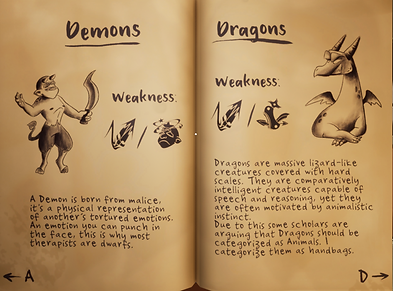 Demons
Weakness:
A Demon is born from malice,
it's a physical representation
of another's tortured emotions.
An emotion you can punch in
the face, this is why most
therapists are dwarfs.
← A
Dragons
Weakness:
Dragons are massive lizard-like
creatures covered with hard
scales. They are comparatively
intelligent creatures capable of
speech and reasoning, yet they
are often motivated by animalistic
instinct.
Due to this some scholars are
arguing that Dragons should be
categorized as Animals. I
categorize them as handbags.
D →